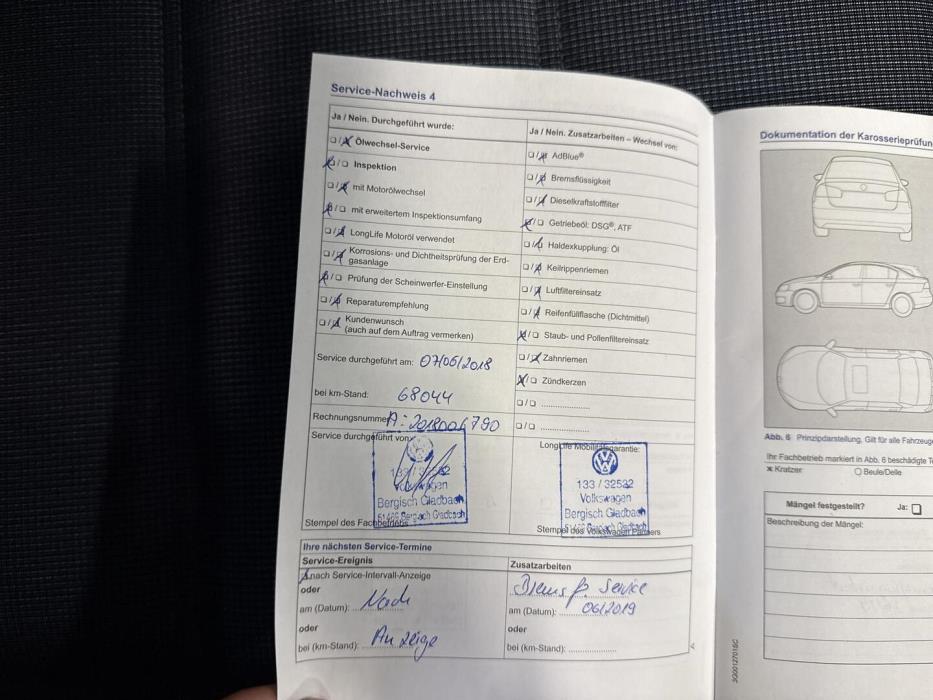 Service-Nachweis 4
Ja / Nein. Durchgeführt wurde:
Ölwechsel-Service
Inspektion
mit Motorölwechsel
mit erweitertem Inspektionsumfang
LongLife Motoröl verwendet
Korrosions- und Dichtheitsprüfung der Erd-
gasanlage
Prüfung der Scheinwerfer-Einstellung
Reparaturempfehlung
Kundenwunsch
(auch auf dem Auftrag vermerken)
Service durchgeführt am: 07/06/2018
bei km-Stand: 68044
Rechnungsnummer
Service durchgeführt von:
Volkswagen
Bergisch Gladbach
Stempel des Fachbetriebs
Ja / Nein. Zusatzarbeiten – Wechsel von:
AdBlue®
Bremsflüssigkeit
Dieselkraftstofffilter
Getriebeöl: DSG®, ATF
Haldexkupplung: Öl
Keilrippenriemen
Luftfiltereinsatz
Reifenfüllflasche (Dichtmittel)
Staub- und Pollenfiltereinsatz
Zahnriemen
Zündkerzen
LongLife Mobilitätsgarantie:
133 / 32532
Volkswagen
Bergisch Gladbach
Stempel des Volkswagen Partners
Ihre nächsten Service-Termine
Service-Ereignis
nach Service-Intervall-Anzeige
oder
am (Datum): Nach
oder
bei (km-Stand): Anzeige
Zusatzarbeiten
Service
am (Datum): 06/2019
oder
bei (km-Stand):
Dokumentation der Karosserieprüfun
Abb. 6 Prinzipdarstellung, Gilt für alle Fahrzeug
Ihr Fachbetrieb markiert in Abb. 6 beschädigte
x Kratzer O Beule/Delle
Mängel festgestellt? Ja:
Beschreibung der Mängel: